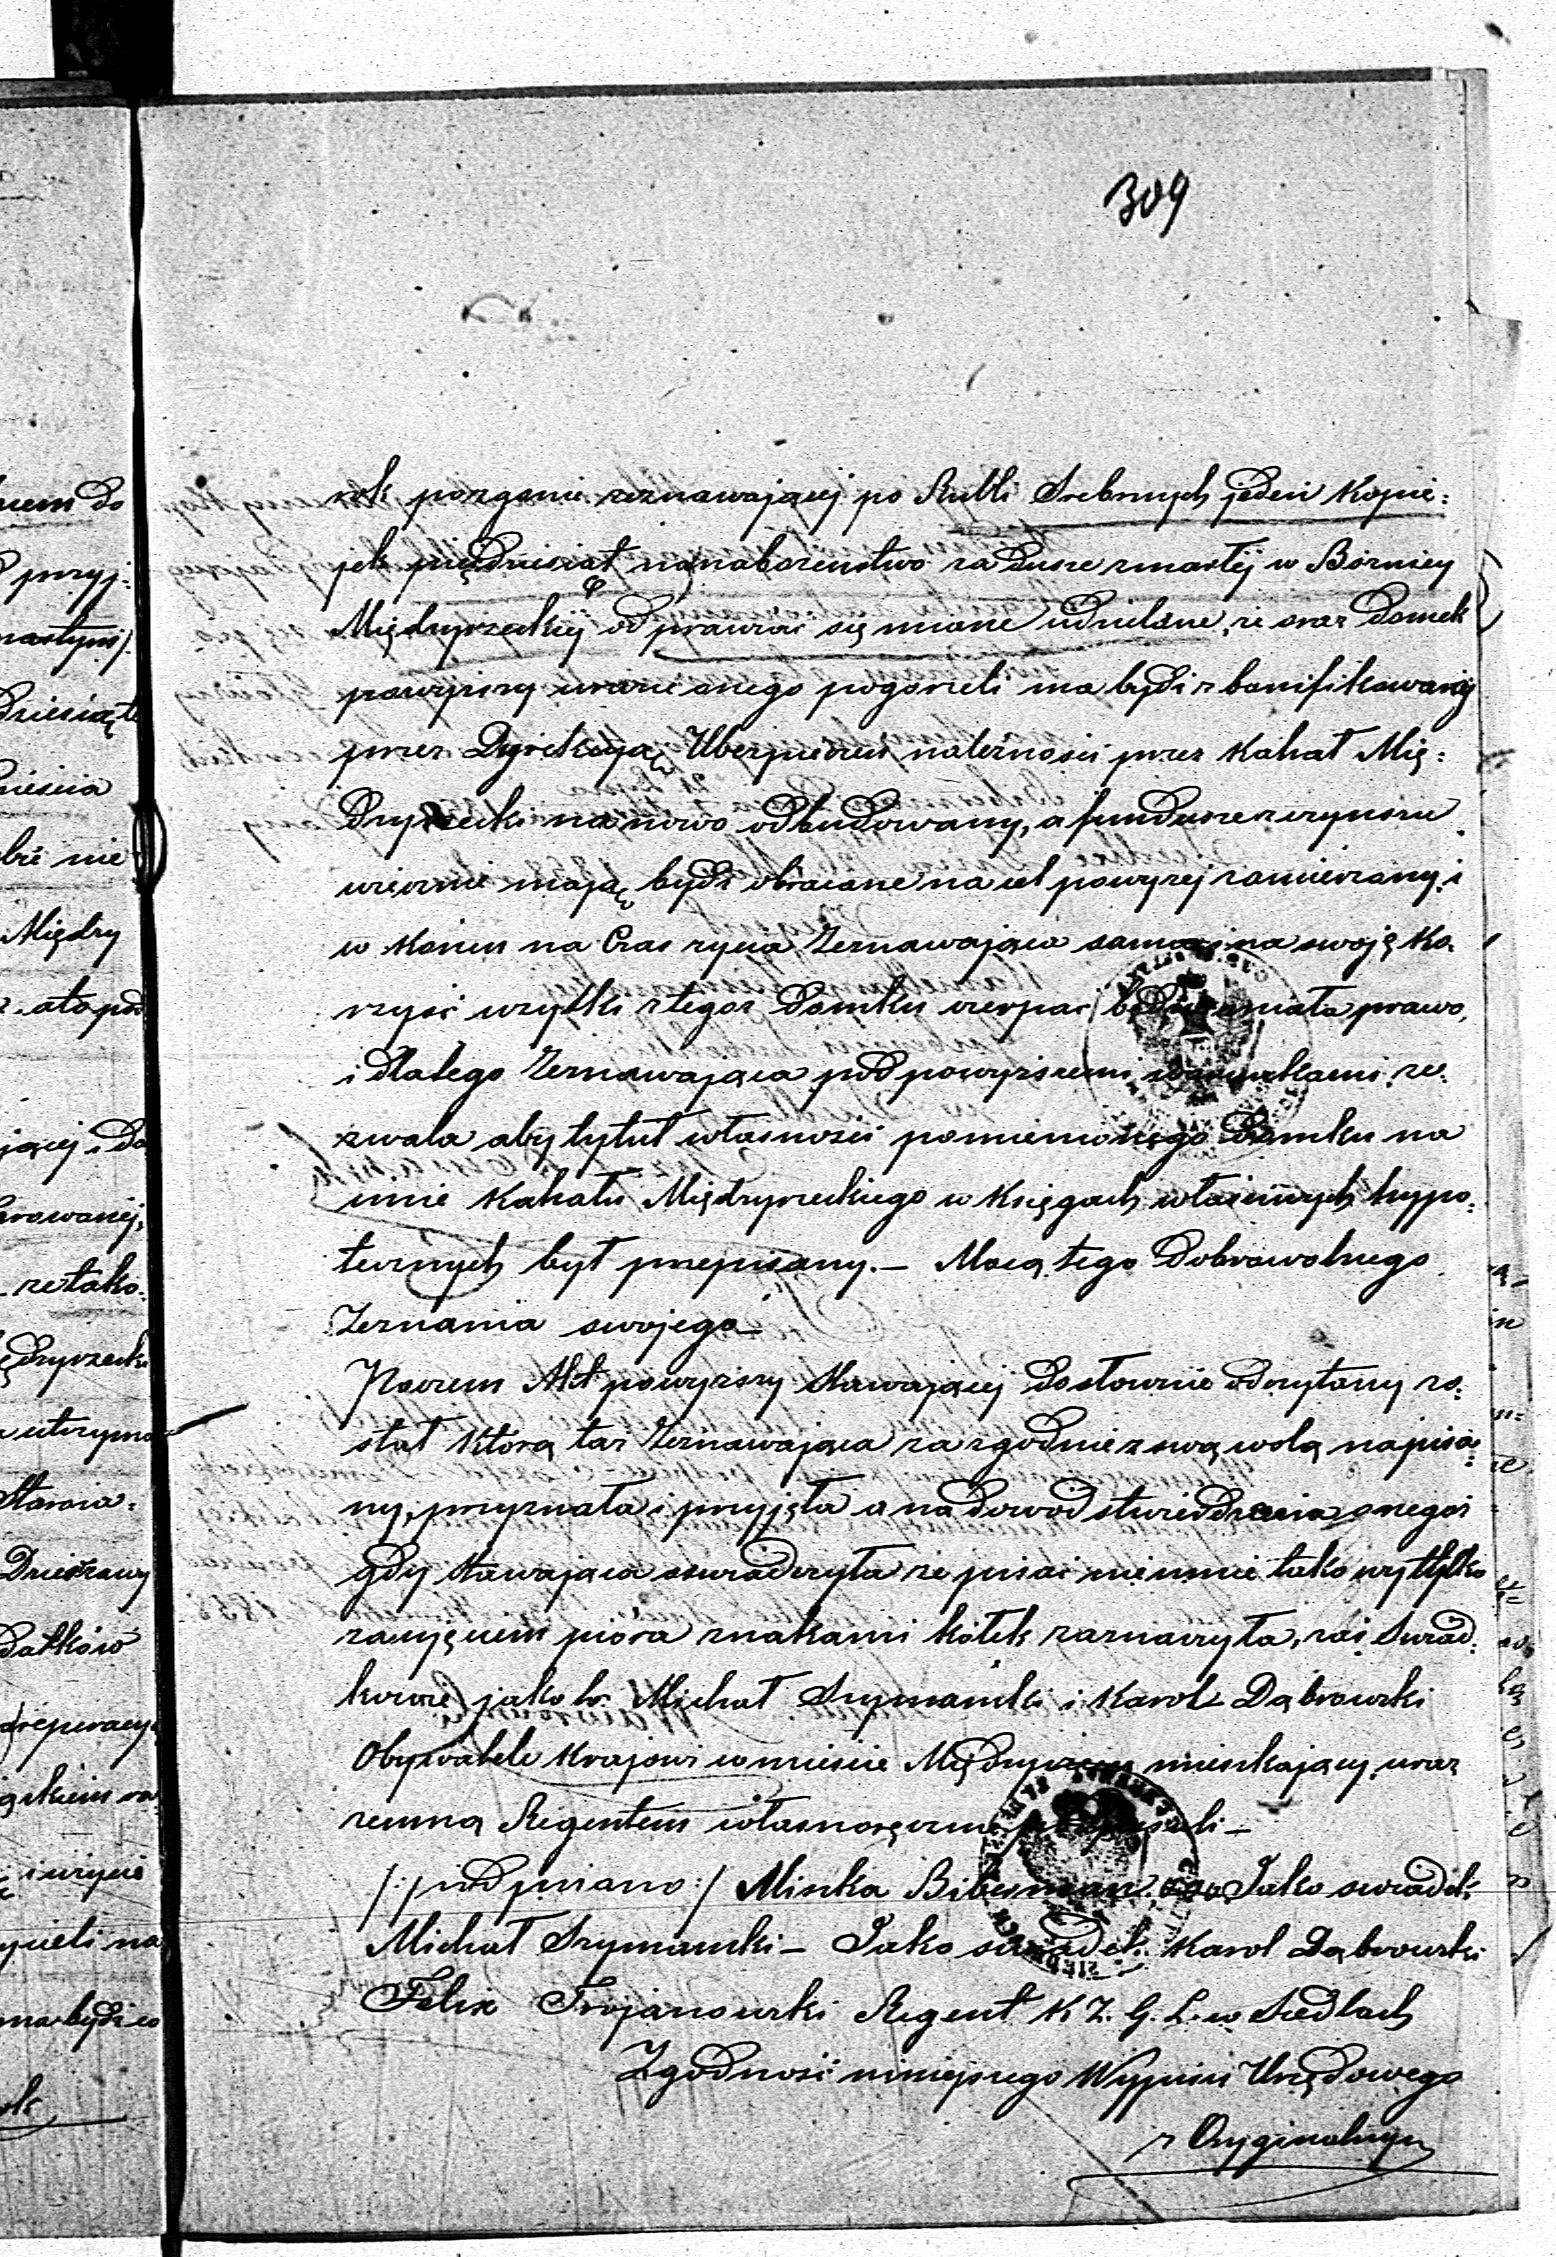 309
rok pozgonie zeznawającej po Rubli Srebrnych jeden Kopie:
jek pięćdziesiąt na nabożeństwo za dusze zmarłéj w Bożnicy
Międzyrzeckiéj odprawiać się miane udzielane, że oraz Domek
powyższy w razie onego pogorzeli ma bydź zbonifikowanéj
przez Dyrekcyją Ubezpieczeń należności przez Kahał Mię:
dzyrzecki na nowo odbudowany, a fundusze z czynszu
wiecznie mają bydź obracane na cel powyżej zamierzony, i
w końcu na Czas życia Zeznawająca sama na swoję ko
rzyść użytki z tegoż Domku czerpać będzie miała prawo,
i dlatego Zeznawająca pod powyższemi warunkami ze:
zwala aby tytuł własności pomienionego Domku na
imie Kahału Międzyrzeckiego w Księgach właściwych hypo:
tecznych był przepisany. – Mocą tego Dobrowolnego
Zeznania swojego –
Poczem Akt powyższy Stawającej dosłownie odczytany zo:
stał którą taż Zeznawająca za zgodnie z swą wolą napisa:
ny, przyznała i przyjęła a na dowód stwierdzenia onegoż
gdy Stawająca oświadczyła że pisać nieumie tako wy tylko
zajęciem pióra znakami kółek zaznaczyła, zaś Świad:
kowie jako to: Michał Szymański i Karol Dąbrowski
Obywatele Krajowi w mieście Międzyrzecu mieszkający, wraz
zemną Regentem własnoręcznie podpisali –
/: podpisano :/ Minka Biberman ooo Jako świadek
Michał Szymański – Jako świadek Karol Dąbrowski
Felix Trojanowski Regent K Z. G. L. w Siedlcach
Zgodność niniejszego Wypisu Urzędowego
z Oryginalnym